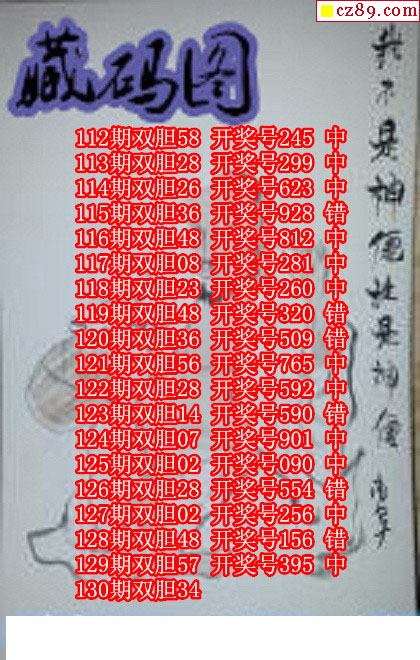 cz89.com
藏码图
112期双胆58 开奖号245 中
113期双胆28 开奖号299 中
114期双胆26 开奖号623 中
115期双胆36 开奖号928 错
116期双胆48 开奖号812 中
117期双胆08 开奖号281 中
118期双胆23 开奖号260 中
119期双胆48 开奖号320 错
120期双胆36 开奖号509 错
121期双胆56 开奖号765 中
122期双胆28 开奖号592 中
123期双胆14 开奖号590 错
124期双胆07 开奖号901 中
125期双胆02 开奖号090 中
126期双胆28 开奖号554 错
127期双胆02 开奖号256 中
128期双胆48 开奖号156 错
129期双胆57 开奖号395 中
130期双胆34
我不是神仙 是神仙